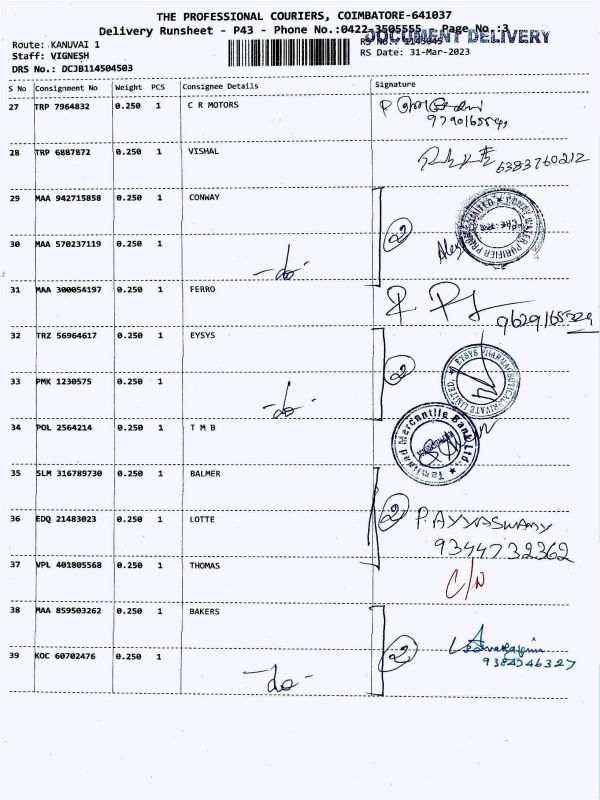 THE PROFESSIONAL COURIERS, COIMBATORE-641037
Delivery Runsheet - P43 - Phone No.:0422-3505555 Page No.:3
DOCUMENT DELIVERY
Route: KANUVAI 1
Staff: VIGNESH
DRS No.: DCJB114504503
RS No.: 1145045
RS Date: 31-Mar-2023
S No Consignment No Weight PCS Consignee Details Signature
27 TRP 7964832 0.250 1 C R MOTORS
28 TRP 6887872 0.250 1 VISHAL 6383760212
29 MAA 942715858 0.250 1 CONWAY
30 MAA 570237119 0.250 1 -do- 2
31 MAA 300054197 0.250 1 FERRO 9629165329
32 TRZ 56964617 0.250 1 EYSYS
33 PMK 1230575 0.250 1 -do- 2
EYSYS PHARMACEUTICAL PRIVATE LIMITED
34 POL 2564214 0.250 1 T M B
Tamilnad Mercantile Bank Ltd.,
35 SLM 316789730 0.250 1 BALMER
36 EDQ 21483023 0.250 1 LOTTE 2 P. AYYASWAMY
9344732362
37 VPL 401805568 0.250 1 THOMAS C/N
38 MAA 859503262 0.250 1 BAKERS
39 KOC 60702476 0.250 1 -do- 2 9384246327